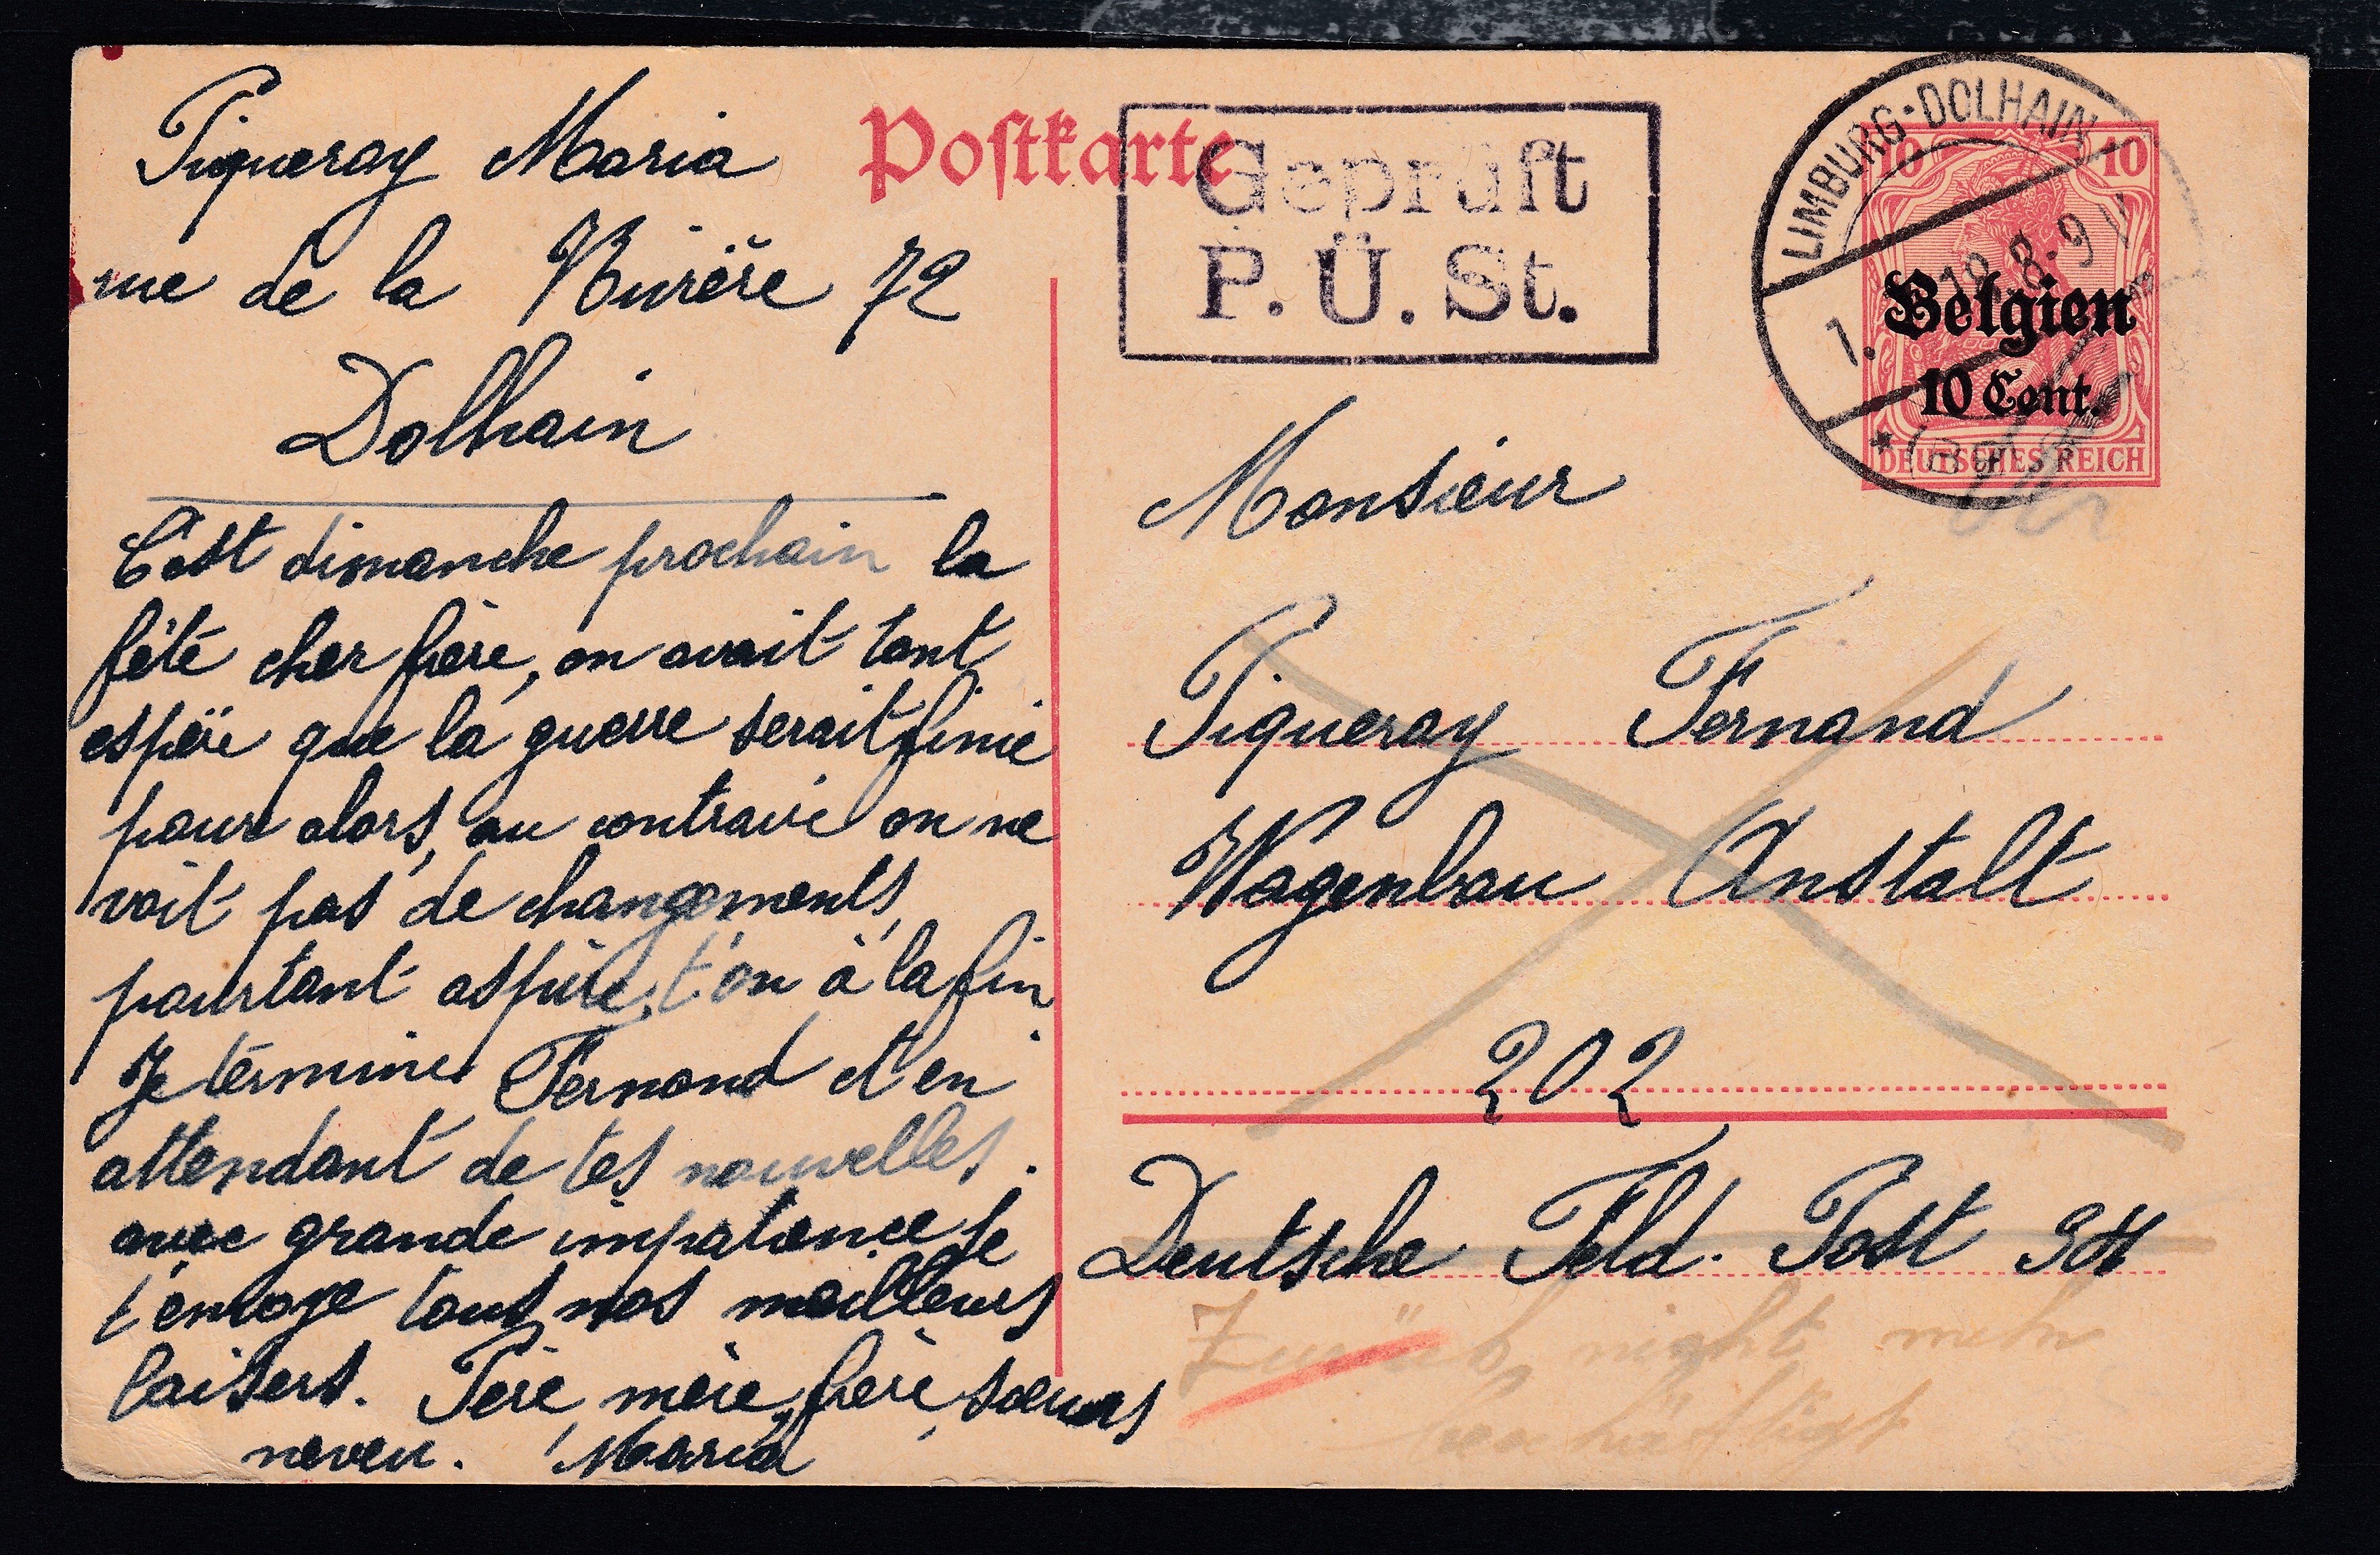 Piqueray Maria
rue de la Rivière 72
Dolhain
C'est dimanche prochain la
fête cher frère, on avait tant
espéré que la guerre serait finie
pour alors, au contraire on ne
voit pas de changements,
pourtant aspire t'on à la fin
Je termine Fernand et en
attendant de tes nouvelles.
avec grande impatience je
t'envoye tous nos meilleurs
baisers. Père, mère, frère, soeurs
neveu. Maria
Postkarte
Geprüft
P. Ü. St.
LIMBURG-DOLHAIN
1. 18. 8-9 V
10 10
Belgien
10 Cent.
DEUTSCHES REICH
Monsieur
Piqueray Fernand
Wagenbau Anstalt
202
Deutsche Feld. Post
Zurück, nicht mehr
beschäftigt